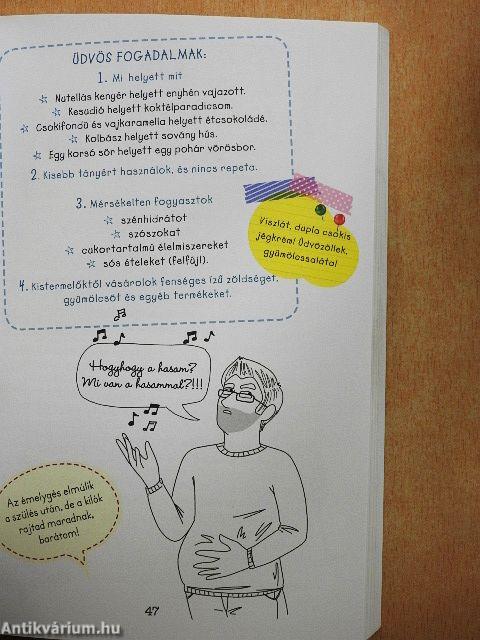 ÜDVÖS FOGADALMAK:
1. Mi helyett mit
Nutellás kenyér helyett enyhén vajazott.
Kesudió helyett koktélparadicsom.
Csokifondü és vajkaramella helyett étcsokoládé.
Kolbász helyett sovány hús.
Egy korsó sör helyett egy pohár vörösbor.
2. Kisebb tányért használok, és nincs repeta.
3. Mérsékelten fogyasztok
szénhidrátot
szószokat
cukortartalmú élelmiszereket
sós ételeket (felfúj!).
4. Kistermelőktől vásárolok fenséges ízű zöldséget,
gyümölcsöt és egyéb termékeket.
Viszlát, dupla csokis
jégkrém! Üdvözöllek,
gyümölcssaláta!
Hogyhogy a hasam?
Mi van a hasammal?!!!
Az émelygés elmúlik
a szülés után, de a kilók
rajtad maradnak,
barátom!
47
Antikvárium.hu